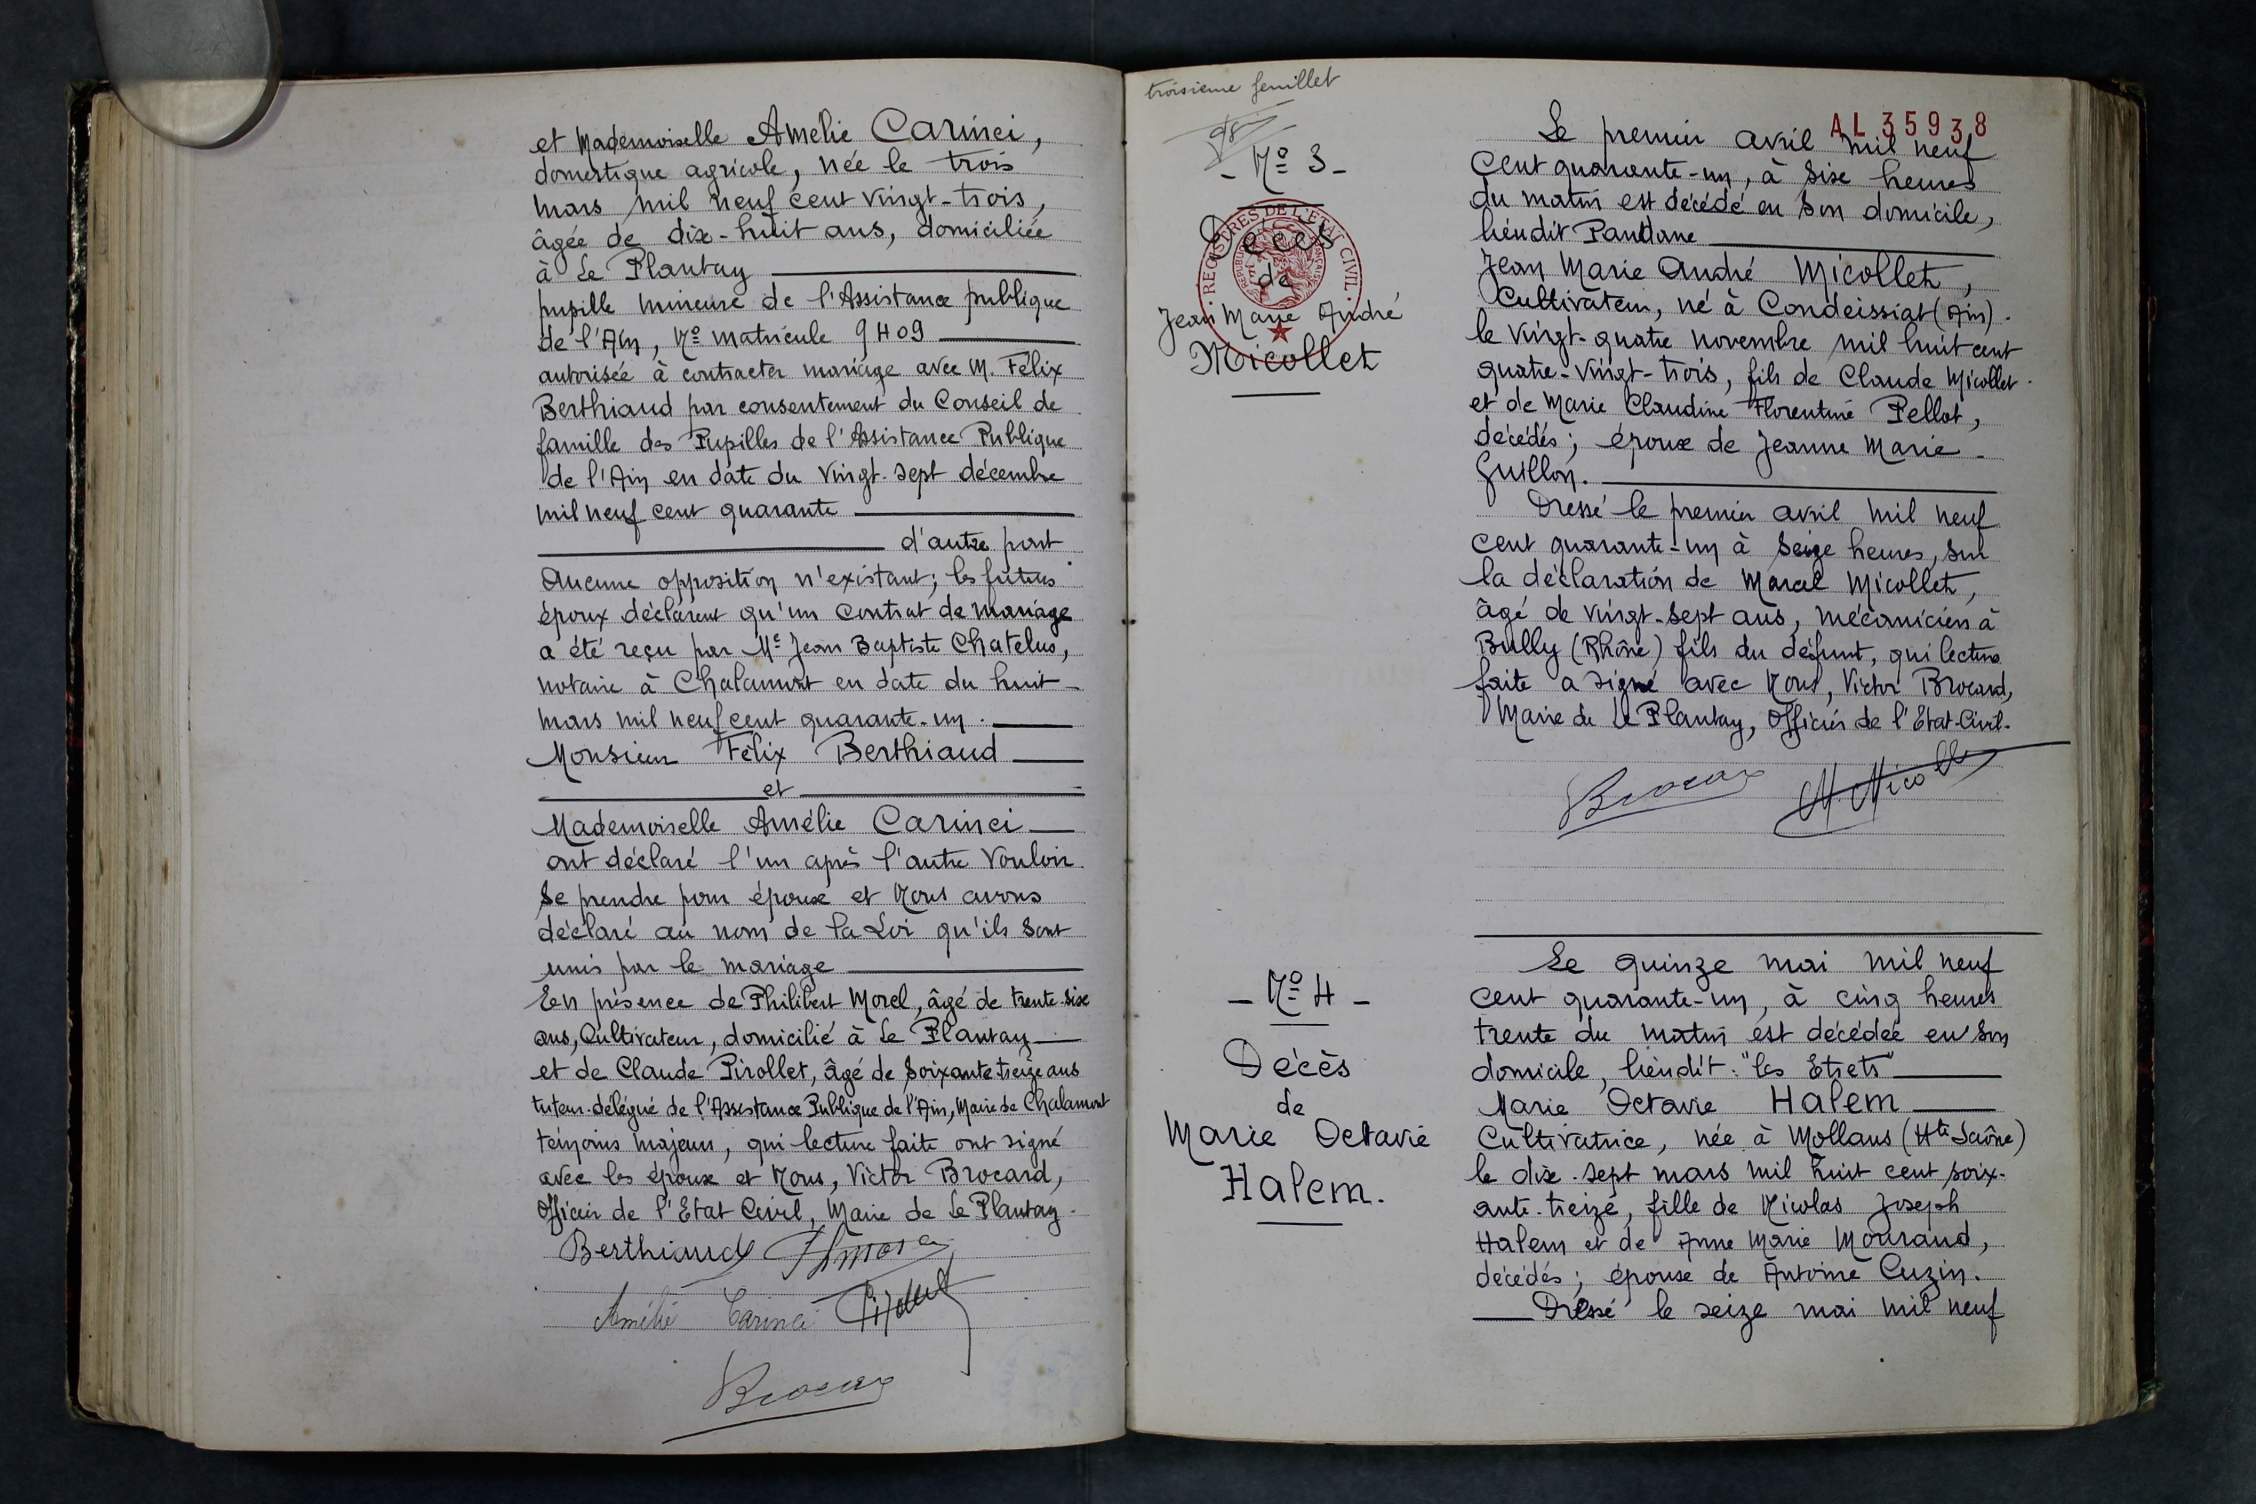 et Mademoiselle Amélie Carinci,
domestique agricole, née le trois
mars mil neuf cent vingt-trois,
âgée de dix-huit ans, domiciliée
à Le Plantay
pupille mineure de l'Assistance publique
de l'Ain, No matricule 9409
autorisée à contracter mariage avec M. Félix
Berthiaud par consentement du Conseil de
famille des Pupilles de l'Assistance Publique
de l'Ain en date du vingt-sept décembre
mil neuf cent quarante
d'autre part
Aucune opposition n'existant; les futurs
époux déclarent qu'un contrat de mariage
a été reçu par Me Jean Baptiste Chatelus,
notaire à Chalamont en date du huit
mars mil neuf cent quarante-un.
Monsieur Félix Berthiaud
et
Mademoiselle Amélie Carinci
ont déclaré l'un après l'autre vouloir
se prendre pour époux et Nous avons
déclaré au nom de la Loi qu'ils sont
unis par le mariage
En présence de Philibert Morel, âgé de trente-six
ans, Cultivateur, domicilié à Le Plantay
et de Claude Pirollet, âgé de soixante treize ans
tuteur-délégué de l'Assistance Publique de l'Ain, Maire de Chalamont
témoins majeurs, qui lecture faite ont signé
avec les époux et Nous, Victor Brocard,
Officier de l'Etat Civil, Maire de Le Plantay.
Berthiaud
Amélie Carinci Pirollet
Brocard
troisième feuillet
- No 3 -
Décès
de
Jean Marie André
Micollet
REGISTRES DE L'ÉTAT CIVIL
AL 35938
Le premier avril mil neuf
cent quarante-un, à six heures
du matin est décédé en son domicile,
lieudit Pandane
Jean Marie André Micollet,
Cultivateur, né à Condeissiat (Ain).
le vingt-quatre novembre mil huit cent
quatre-vingt-trois, fils de Claude Micollet
et de Marie Claudine Florentine Pellot,
décédés; époux de Jeanne Marie
Guillon.
Dressé le premier avril mil neuf
cent quarante-un à seize heures, sur
la déclaration de Marcel Micollet,
âgé de vingt-sept ans, mécanicien à
Bully (Rhône) fils du défunt, qui lecture
faite a signé avec Nous, Victor Brocard,
Maire de Le Plantay, Officier de l'Etat-Civil.
Brocard M. Micollet
- No 4 -
Décès
de
Marie Octavie
Halem.
Le quinze mai mil neuf
cent quarante-un, à cinq heures
trente du matin est décédée en son
domicile, lieudit: "les Etrets"
Marie Octavie Halem
Cultivatrice, née à Mollans (Hte Saône)
le dix-sept mars mil huit cent soix-
ante-treize, fille de Nicolas Joseph
Halem et de Anne Marie Mourand,
décédés; épouse de Antoine Cuzin.
Dressé le seize mai mil neuf